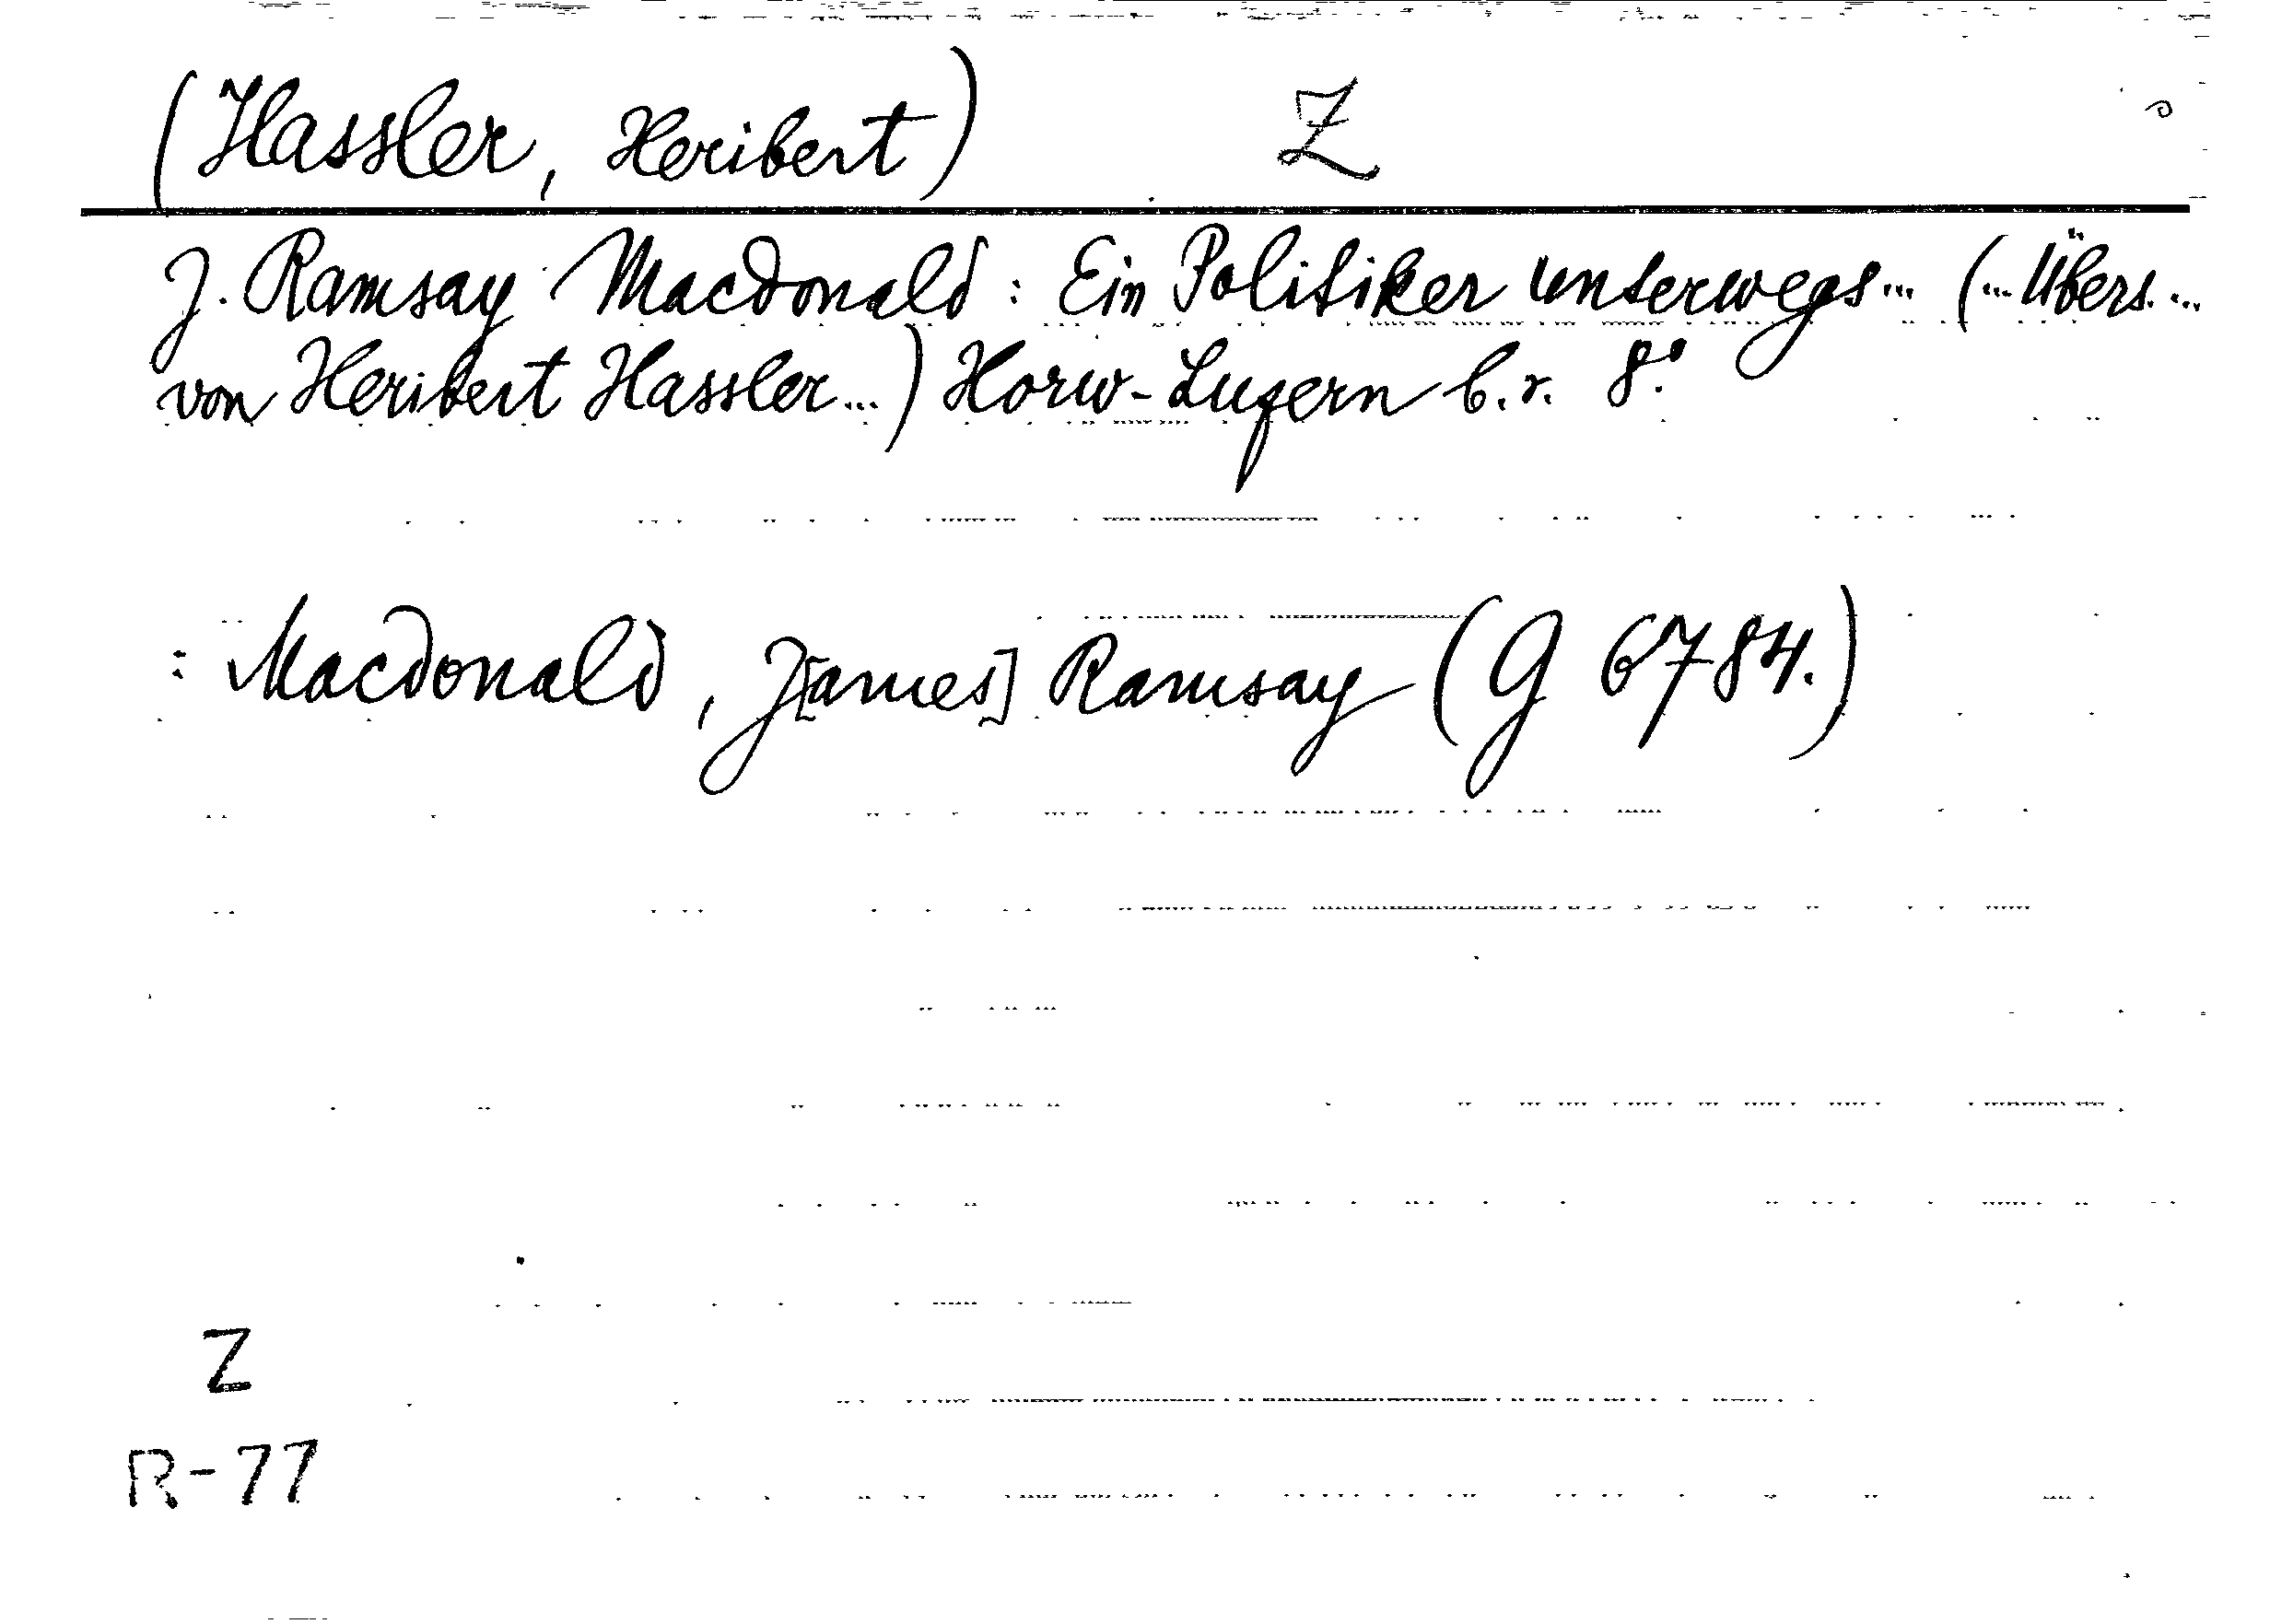 (Hassler, Heribert) Z
J. Ramsay Macdonald: Ein Politiker unterwegs... (...Übers....
von Heribert Hassler...) Horw-Luzern b.r. 8.°
: Macdonald, J[ames] Ramsay (G 6784.)
Z
R-77